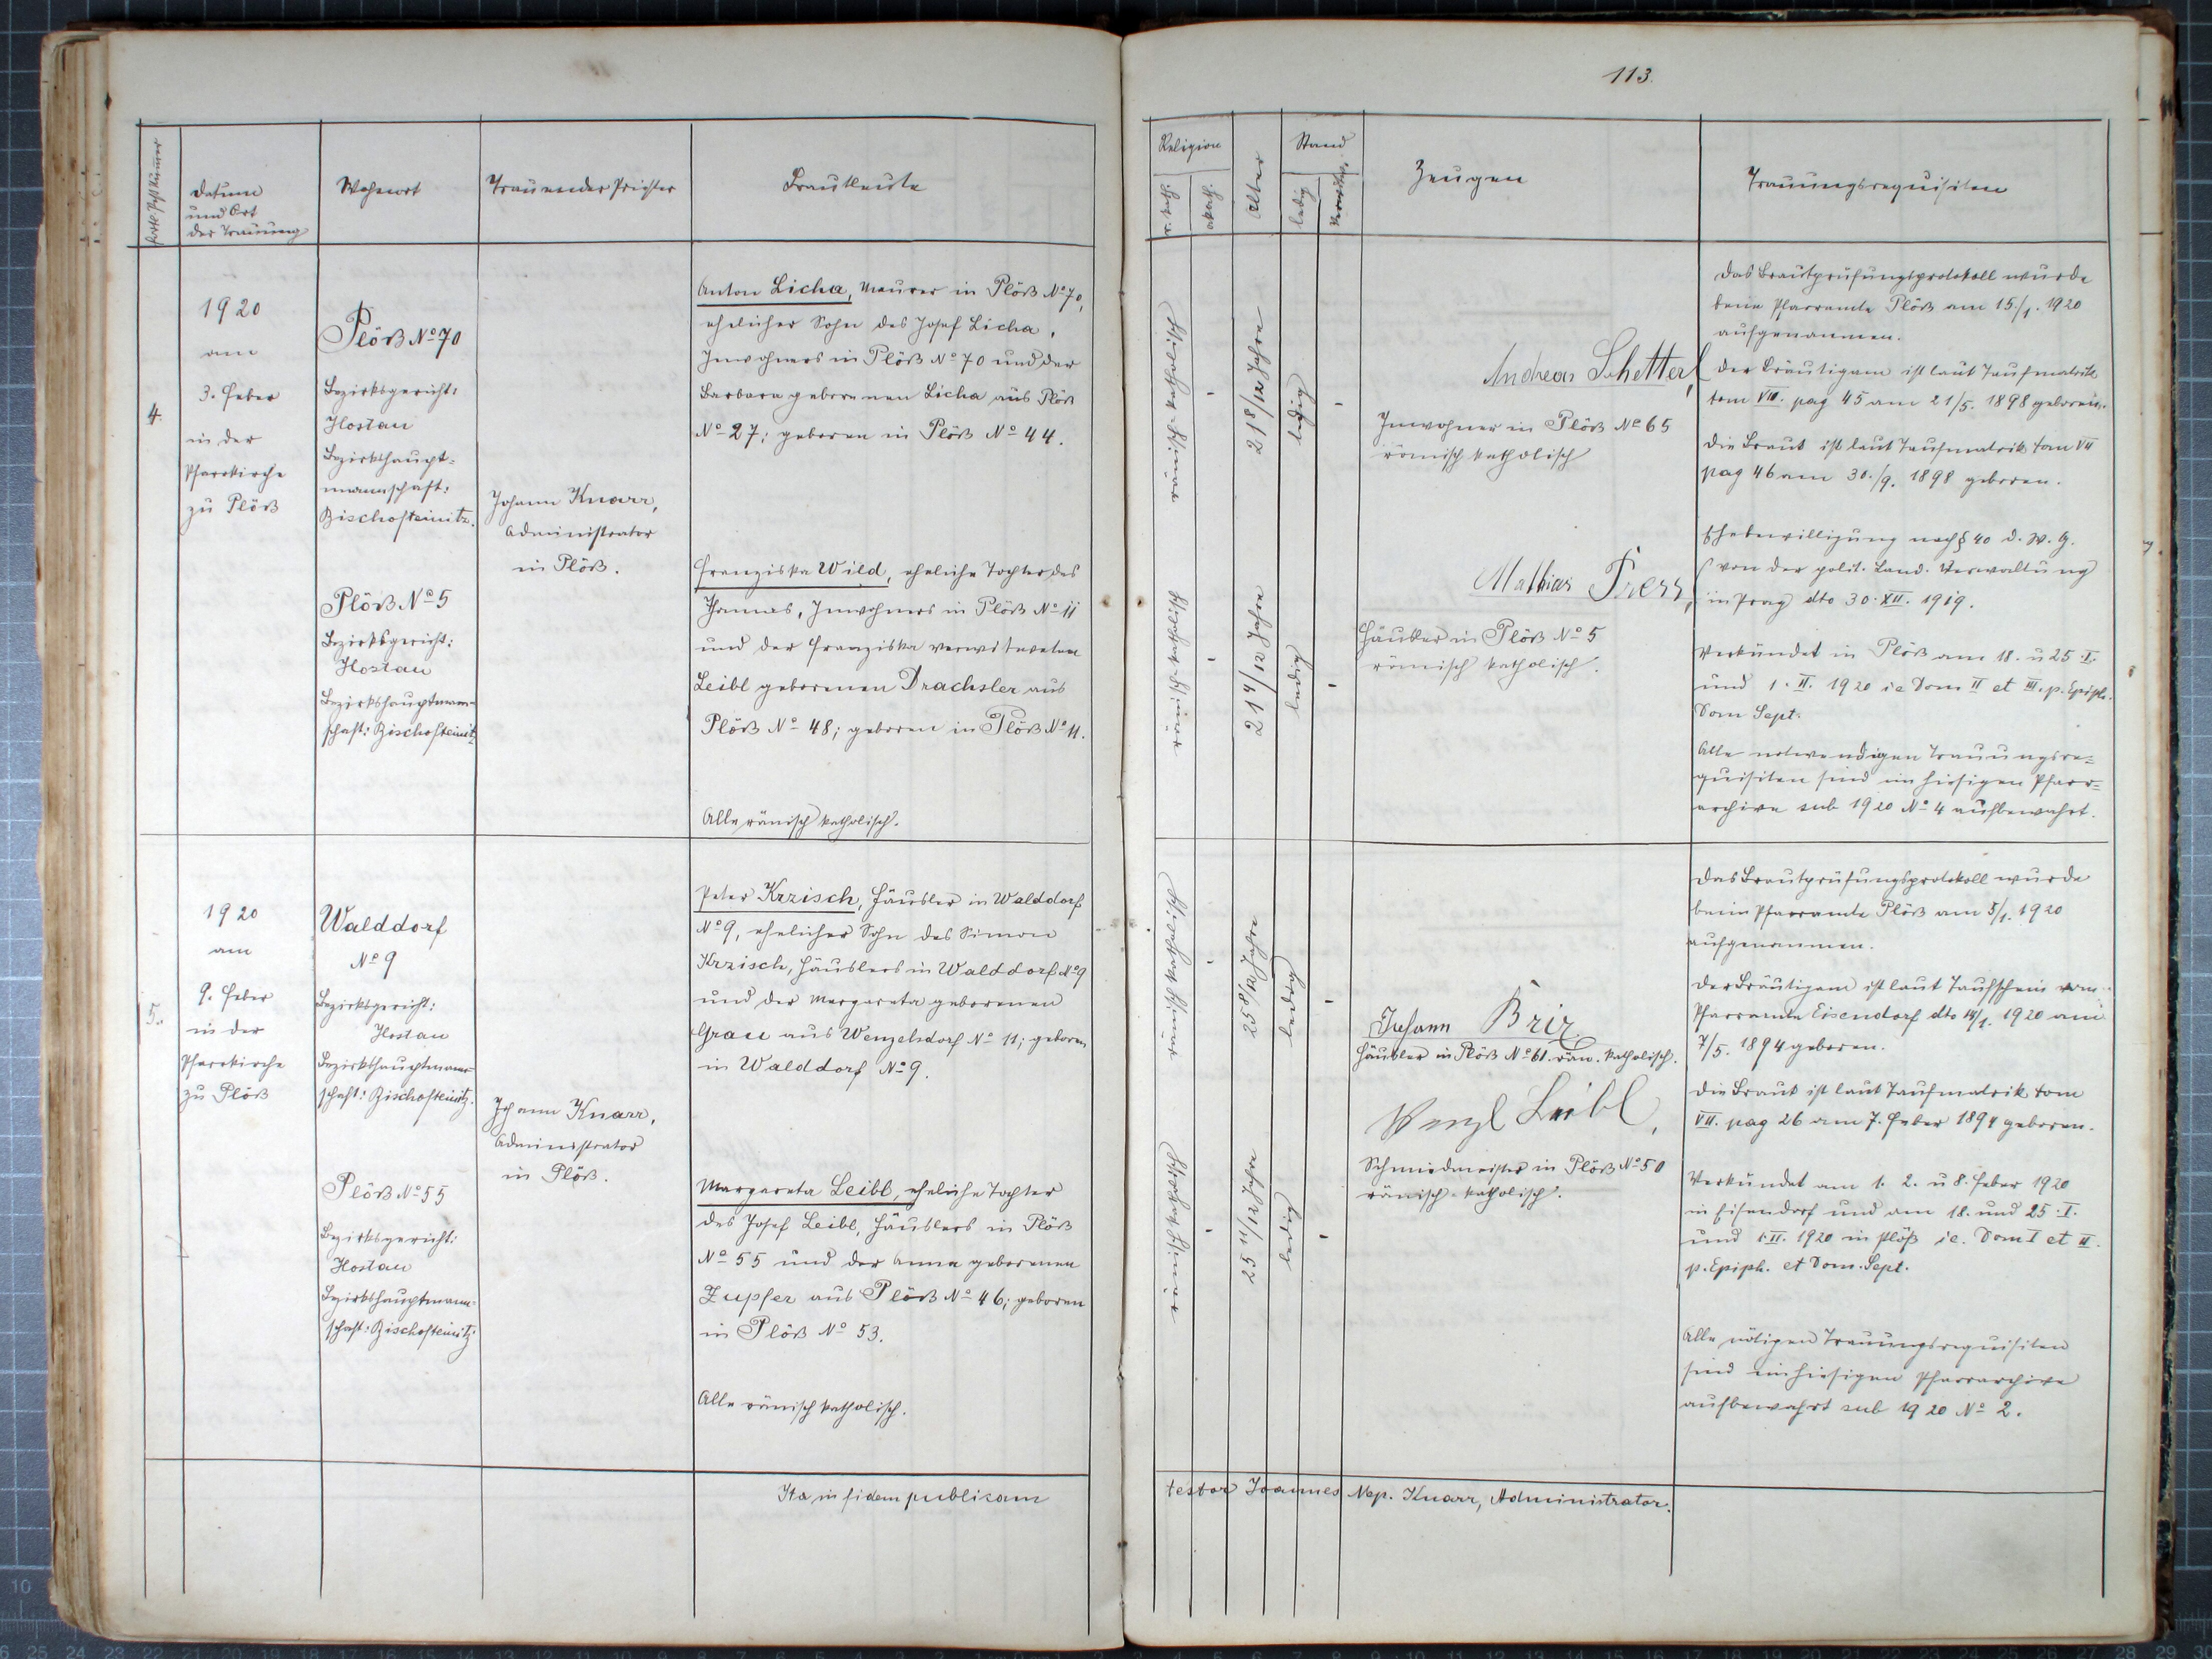 113.
Fortl. Post Nummer
Datum
und Ort
der Trauung
Wohnort
Trauender Priester
Brautleute
Religion
r. kath.
akath.
Alter
Stand
ledig
Zeugen
Trauungsrequisiten
4.
1920
am
3. Feber
in der
Pfarrkirche
zu Plöß
Plöß No 70
Bezirksgericht:
Hostau
Bezirkshaupt=
mannschaft:
Bischofteinitz.
Plöß No 5
Bezirksgericht:
Hostau
Bezirkshauptmann=
schaft: Bischofteinitz
Johann Knarr,
Administrator
in Plöß.
Anton Licha, Maurer in Plöß No 70,
ehelicher Sohn des Josef Licha,
Inwohners in Plöß No 70 und der
Barbara geborenen Licha aus Plöß
No 27; geboren in Plöß No 44.
Franziska Wild, eheliche Tochter des
Thomas, Inwohners in Plöß No 11
und der Franziska verwitweten
Leibl geborenen Drachsler aus
Plöß No 48; geboren in Plöß No 11.
Alle römisch katholisch.
römisch-katholisch
-
21 8/12 Jahre
ledig
-
römisch-katholisch
-
21 4/12 Jahre
ledig
-
Andreas Schetterl,
Inwohner in Plöß No 65
römisch katholisch
Mathias
Häusler in Plöß No 5
römisch katholisch.
Das Brautprüfungsprotokoll wurde
beim Pfarramte Plöß am 15/1. 1920
aufgenommen.
Der Bräutigam ist laut Taufmatrik
tom VII. pag 45 am 21/5. 1898 geboren.
Die Braut ist laut Taufmatrik tom VII
pag 46 am 30./9. 1898 geboren.
Ehebewilligung nach § 40 d. W. G.
von der polit. Land. Verwaltung
in Prag dto 30. XII. 1919.
Verkündet in Plöß am 18. u 25. I.
und 1. II. 1920 ie Dom II et III. p. Epiph.
Dom Sept.
Alle notwendigen Trauungsre=
quisiten sind im hiesigen Pfarr=
archive sub 1920 No 4 aufbewahrt.
5.
1920
am
9. Feber
in der
Pfarrkirche
zu Plöß
Walddorf
No 9
Bezirksgericht:
Hostau
Bezirkshauptmann=
schaft: Bischofteinitz.
Plöß No 55
Bezirksgericht:
Hostau
Bezirkshauptmann=
schaft: Bischofteinitz
Johann Knarr,
Administrator
in Plöß.
Peter Krzisch, Häusler in Walddorf
No 9, ehelicher Sohn des Simon
Krzisch, Häuslers in Walddorf No 9
und der Margareta geborenen
Grau aus Wenzelsdorf No 11; geboren
in Walddorf No 9.
Margareta Leibl, eheliche Tochter
des Josef Leibl, Häuslers in Plöß
No 55 und der Anna geborenen
Zupfer aus Plöß No 46; geboren
in Plöß No 53.
Alle römisch katholisch.
römisch katholisch
-
25 8/12 Jahre
ledig
-
römisch katholisch
-
25 11/12 Jahre
ledig
-
Johann Brix
Häusler in Plöß No 61. röm. katholisch.
Wenzl Leibl,
Schmiedmeister in Plöß No 50
römisch-katholisch.
Das Brautprüfungsprotokoll wurde
beim Pfarramte Plöß am 5/1. 1920
aufgenommen.
Der Bräutigam ist laut Taufschein vom
Pfarramte Eisendorf dto 14/1. 1920 am
7/5. 1894 geboren.
Die Braut ist laut Taufmatrik tom
VII. pag 26 am 7. Feber 1894 geboren.
Verkündet am 1. 2. u 8. Feber 1920
in Eisendorf und am 18. und 25. I.
und 1. II. 1920 in Plöß ie. Dom I et II.
p. Epiph. et Dom. Sept.
Alle nötigen Trauungsrequisiten
sind im hiesigen Pfarrarchive
aufbewahrt sub 1920 No 2.
Ita in fidem publicam testor Joannes Nep. Knarr, Administrator.